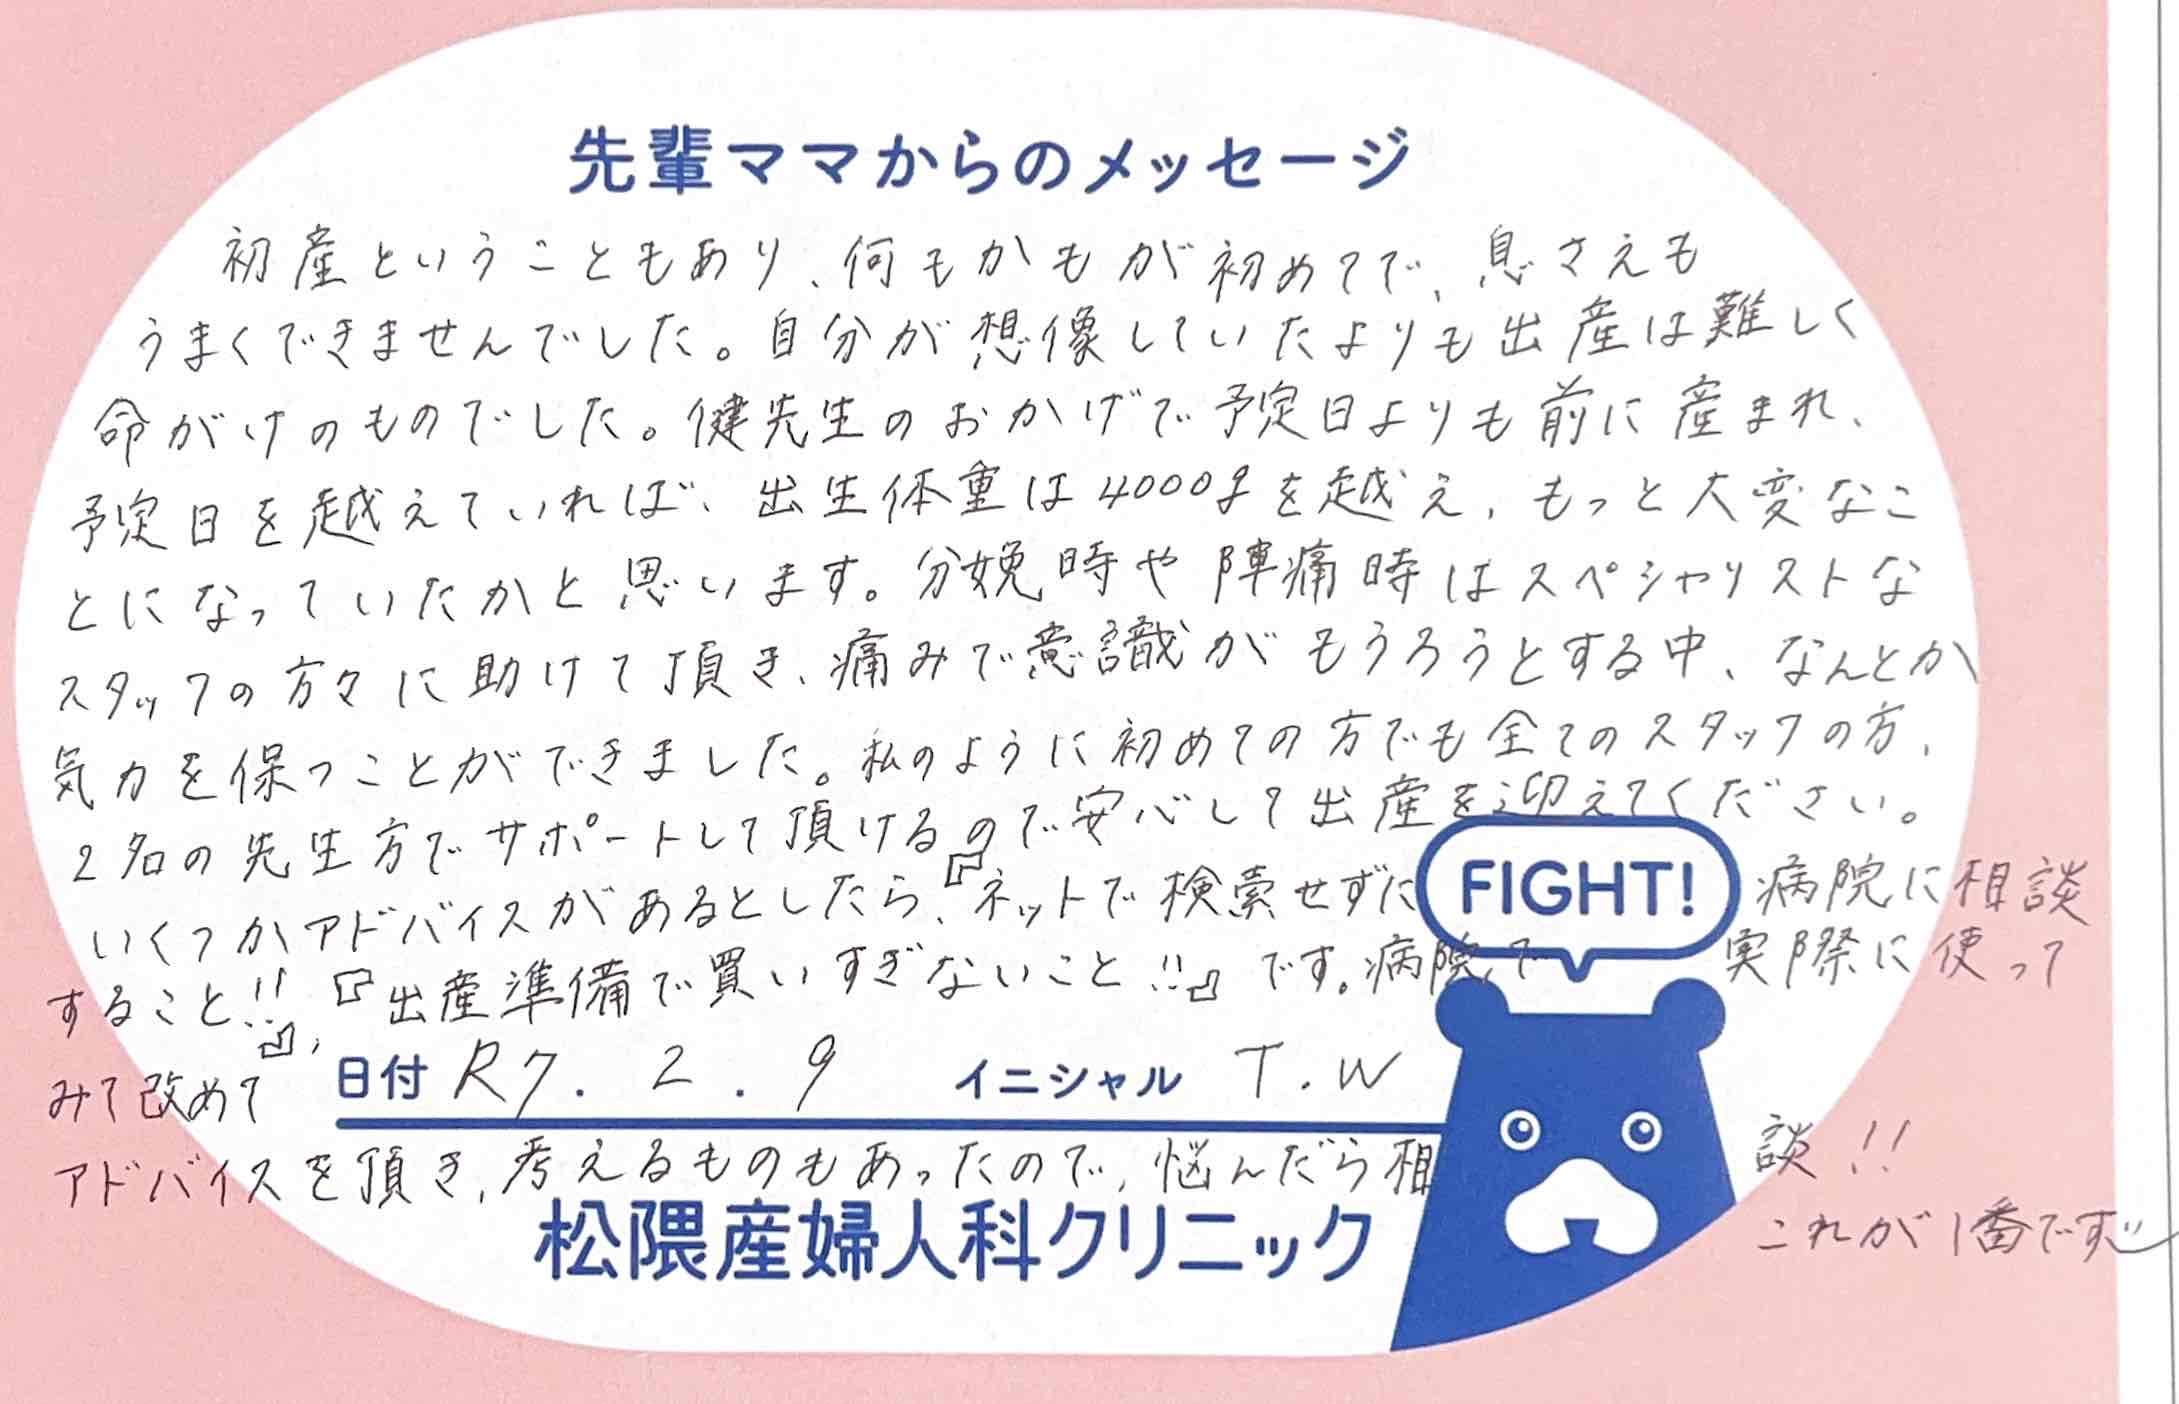 先輩ママからのメッセージ
初産ということもあり、何もかもが初めてで、息さえも
うまくできませんでした。自分が想像していたよりも出産は難しく
命がけのものでした。健先生のおかげで予定日よりも前に産まれ、
予定日を越えていれば、出生体重は4000gを越え、もっと大変なこ
とになっていたかと思います。分娩時や陣痛時はスペシャリストな
スタッフの方々に助けて頂き、痛みで意識がもうろうとする中、なんとか
気力を保つことができました。私のように初めての方でも全てのスタッフの方、
2名の先生方でサポートして頂けるので安心して出産を迎えてください。
いくつかアドバイスがあるとしたら、『ネットで検索せずに病院に相談
FIGHT!
すること!!』、『出産準備で買いすぎないこと!!』です。病院で実際に使って
みて改めて
日付 R7.2.9 イニシャル T.W
アドバイスを頂き、考えるものもあったので、悩んだら相談!!
これが1番です
松隈産婦人科クリニック